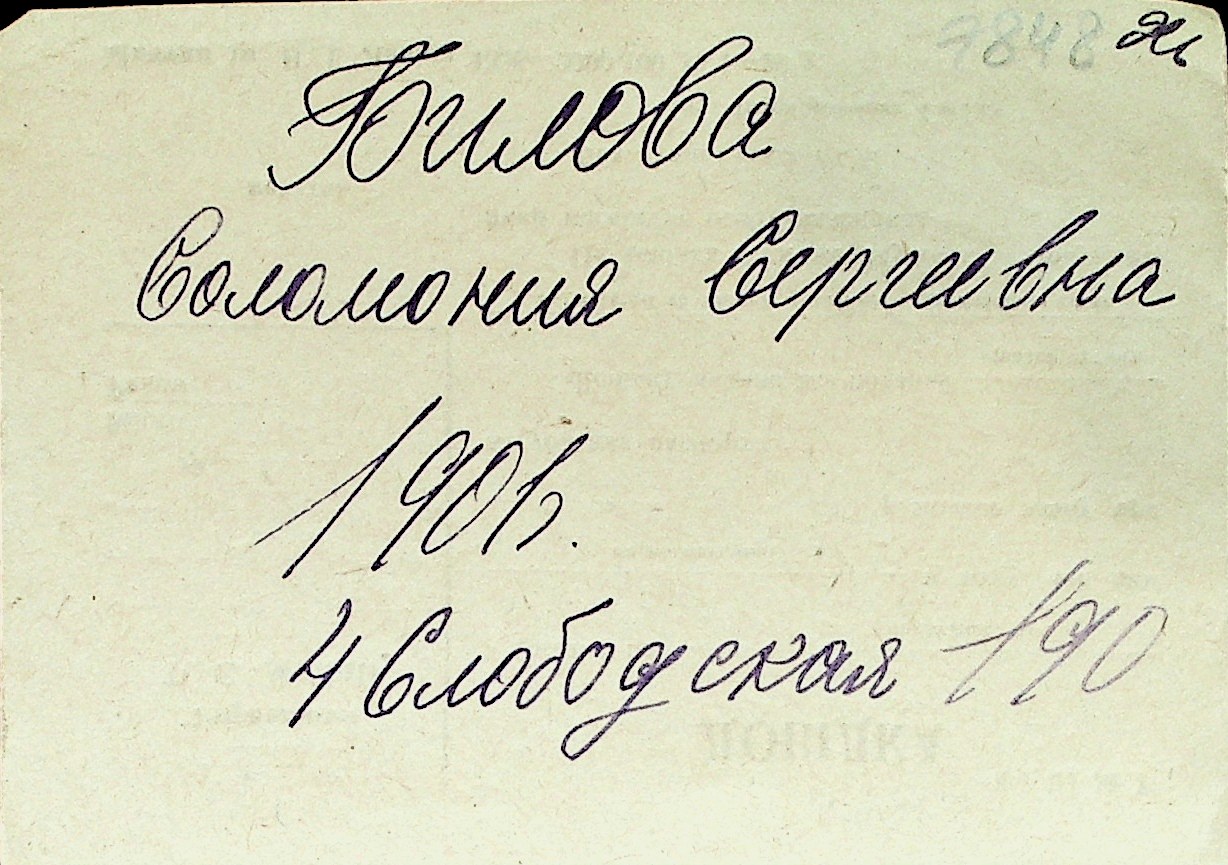 7848 ж
Билова
Соломония Сергеевна
1906.
4 Слободская 190